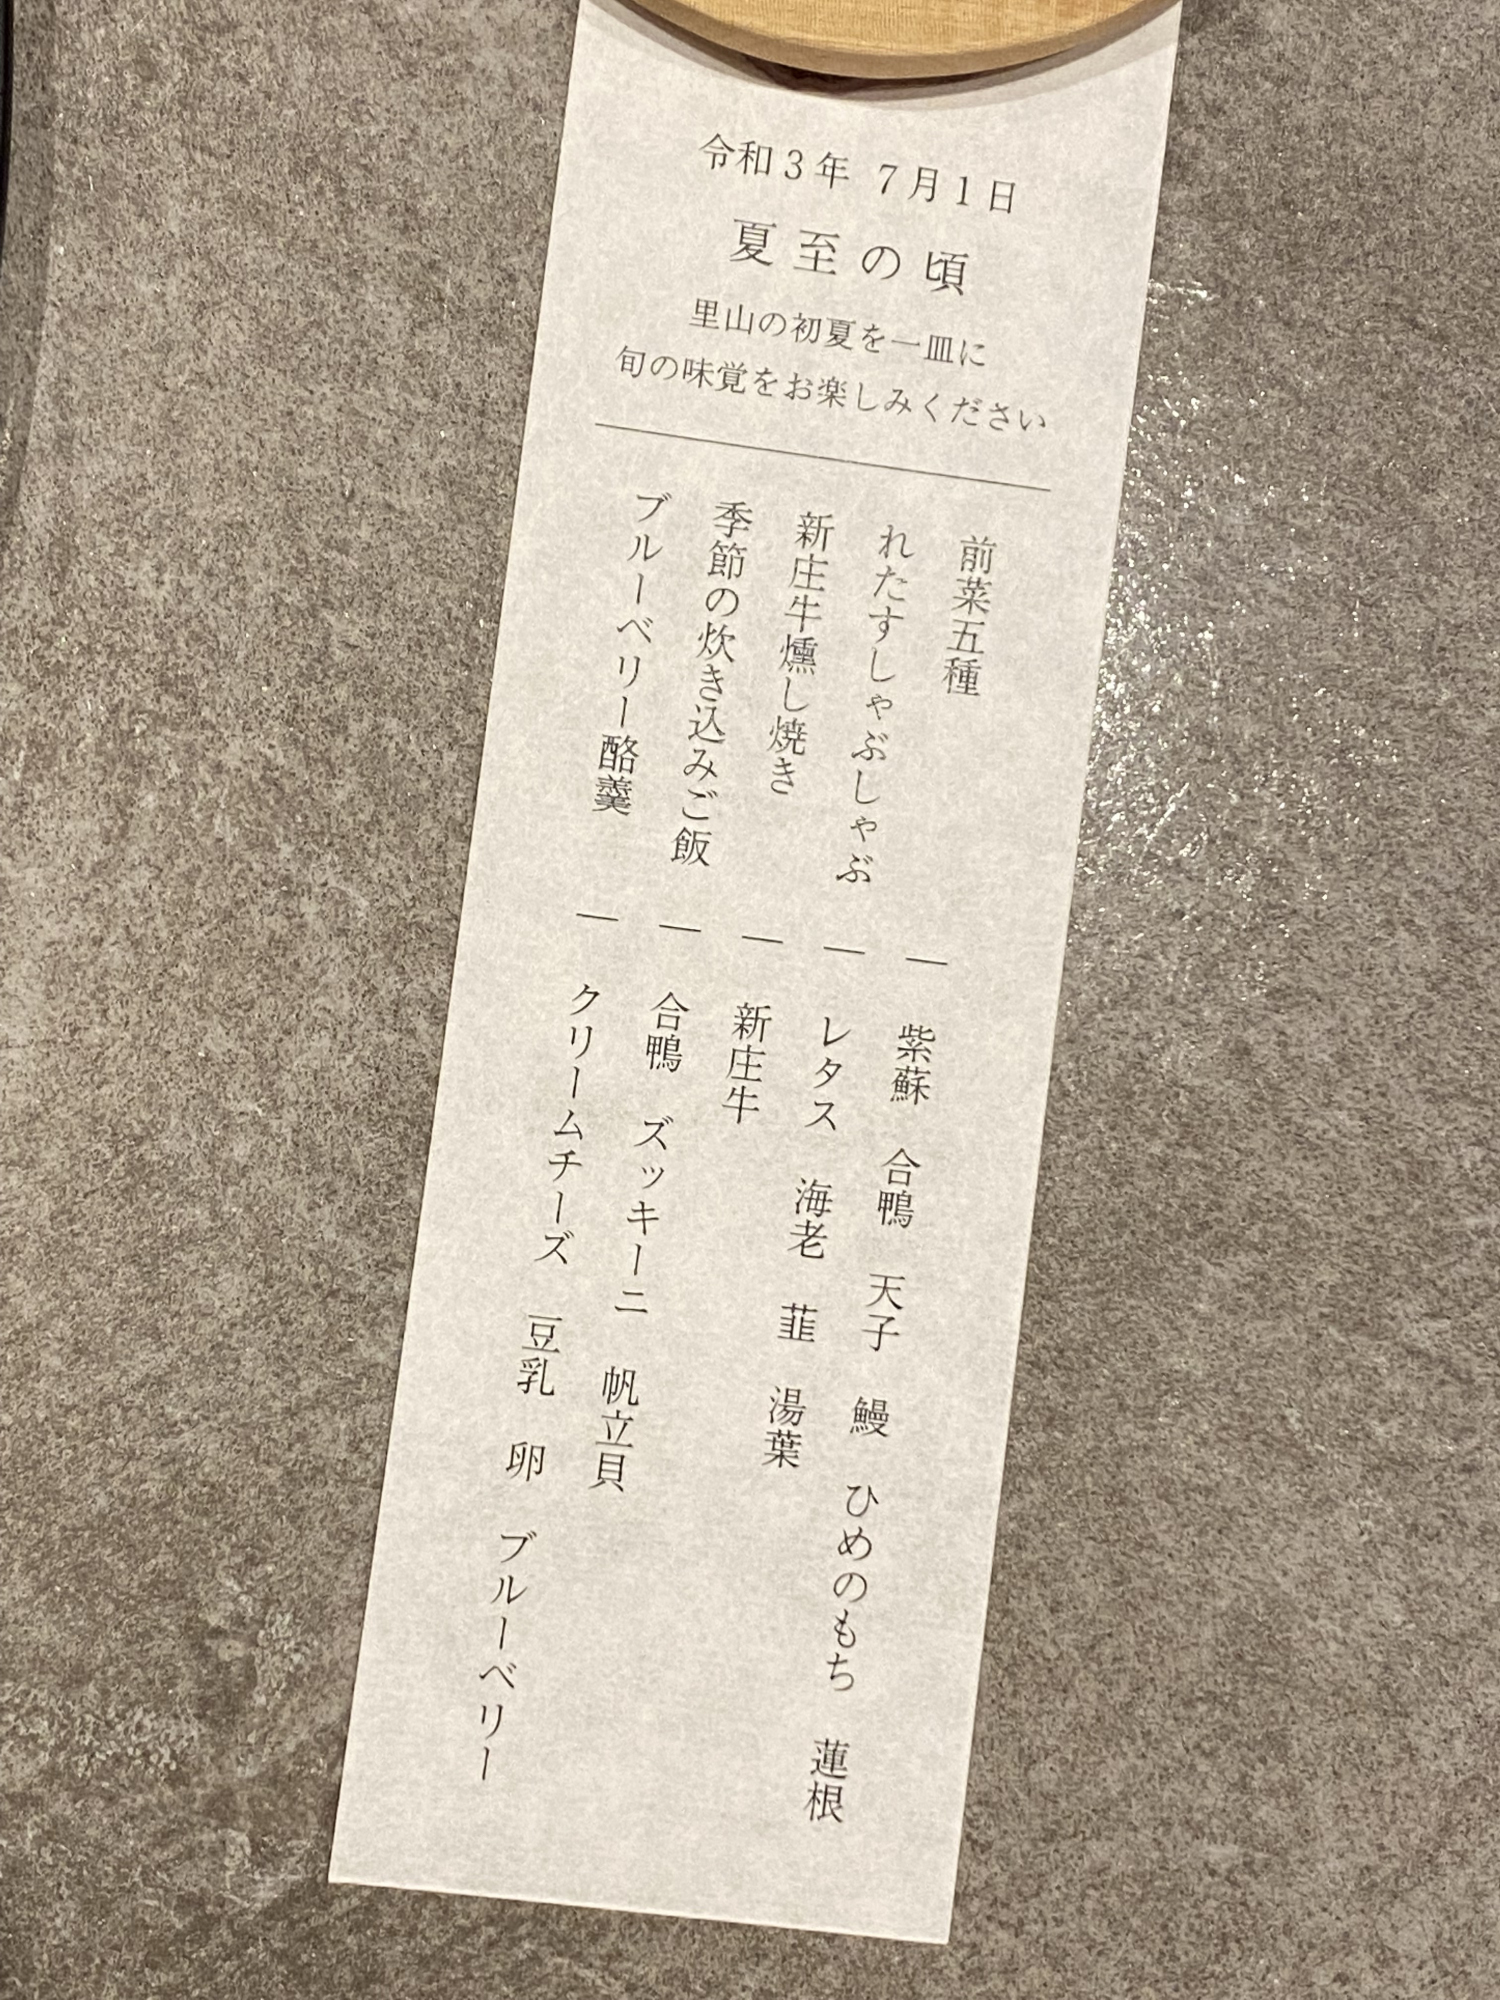 令和3年 7月1日
夏至の頃
里山の初夏を一皿に
旬の味覚をお楽しみください
前菜五種 ― 紫蘇 合鴨 天子 鰻 ひめのもち 蓮根
れたすしゃぶしゃぶ ― レタス 海老 韮 湯葉
新庄牛燻し焼き ― 新庄牛
季節の炊き込みご飯 ― 合鴨 ズッキーニ 帆立貝
ブルーベリー酪羹 ― クリームチーズ 豆乳 卵 ブルーベリー